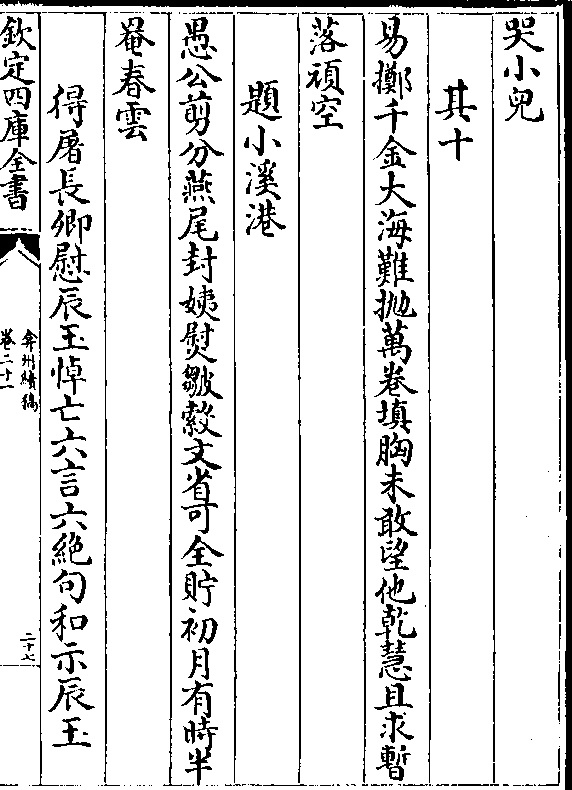 哭小兒
其十
易擲千金大海難拋萬卷填胸未敢望他乾慧且求暫
落頑空
題小溪港
愚公剪分燕尾封姨熨皺縠文省可全貯初月有時半
罨春雲
得屠長卿慰辰玉悼亡六言六絕句和示辰玉
欽定四庫全書
弇州續稿
卷二十一
二十七